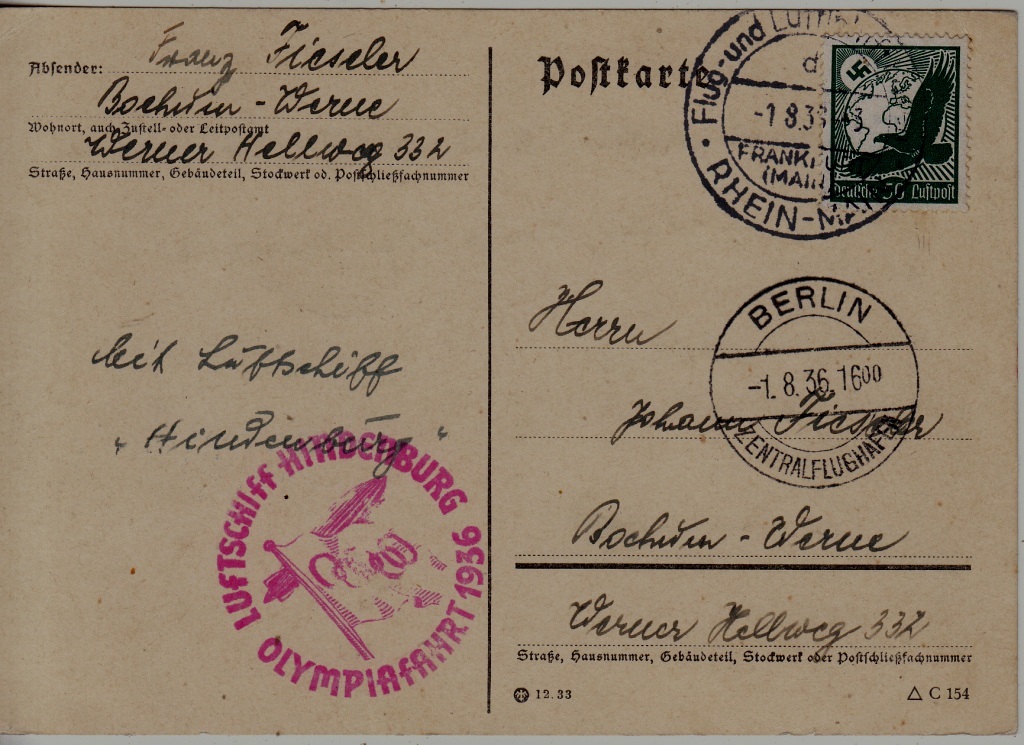 Absender: Franz Fieseler
Bochum-Werne
Wohnort, auch Zustell- oder Leitpostamt
Werner Hellweg 332
Straße, Hausnummer, Gebäudeteil, Stockwerk od. Postschließfachnummer
Mit Luftschiff
„Hindenburg"
LUFTSCHIFF HINDENBURG
OLYMPIAFAHRT 1936
Postkarte
Flug- und Luft
d
-1.8.36
FRANKFU
(MAIN
RHEIN-MA
Deutsche 50 Luftpost
BERLIN
-1.8.36.1600
ZENTRALFLUGHAFEN
Herrn
Johann Fieseler
Bochum-Werne
Werner Hellweg 332
Straße, Hausnummer, Gebäudeteil, Stockwerk oder Postschließfachnummer
12.33
△ C 154